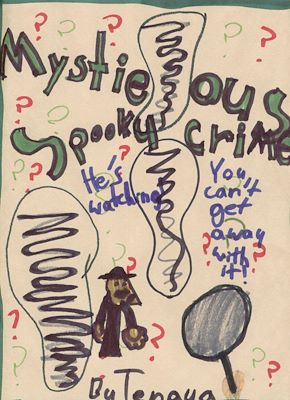 Mystie ous
Spooky crime
He's
watching
You
can't
get
away
with
it!
By Tenaya